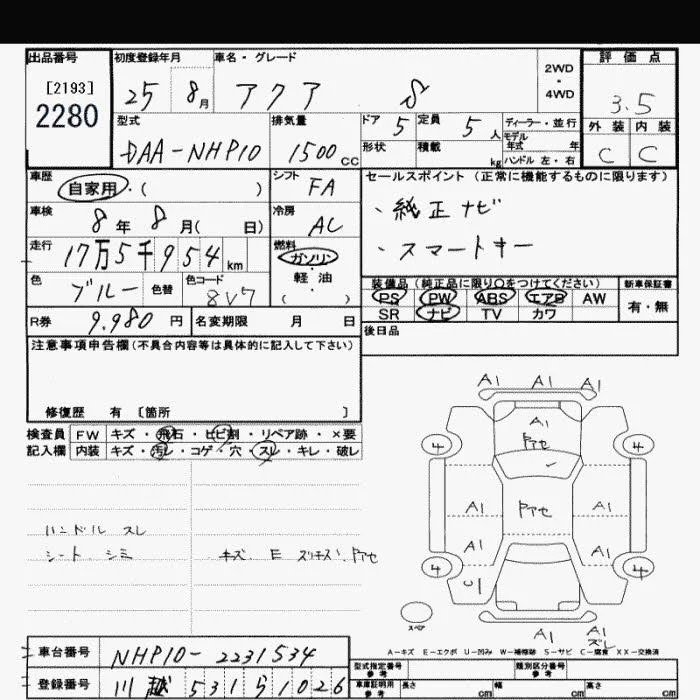 出品番号
[2193]
2280
初度登録年月
25 8月
車名・グレード
アクア S
2WD
・
4WD
評価点
3.5
外装 内装
C C
型式
DAA-NHP10
排気量
1500cc
ドア 5
定員 5人
形状
積載 kg
ディーラー・並行
モデル
年式 年
ハンドル 左・右
車歴
自家用・( )
シフト
FA
車検
8年 8月( 日)
冷房
AC
走行
17万5千954km
燃料
ガソリン
・
軽油
・
( )
色
ブルー
色替
色コード
8V7
R券 9,980円
名変期限 月 日
セールスポイント (正常に機能するものに限ります)
・純正ナビ
・スマートキー
装備品 (純正品に限り○をつけてください)
PS PW ABS エアB AW
SR ナビ TV カワ
新車保証書
有・無
後日品
注意事項申告欄 (不具合内容等は具体的に記入して下さい)
修復歴 有 〔箇所 〕
検査員
記入欄
FW キズ・飛石・ヒビ割・リペア跡・×要
内装 キズ・汚レ・コゲ・穴・スレ・キレ・破レ
ハンドル スレ
シート シミ
キズ E スリキズ Pアセ
A1 A1 A1
A1
Pアセ
4 4
A1 Pアセ A1
A1 A1
4 4
U1
スペア
A1 A1
ズレ
A-キズ E-エクボ U-凹み W-補修跡 S-サビ C-腐食 XX-交換済
車台番号 NHP10-2231534
登録番号 川越 531 ら 1026
型式指定番号
参考
類別区分番号
参考
車庫証明用
参考
長さ cm 幅 cm 高さ cm